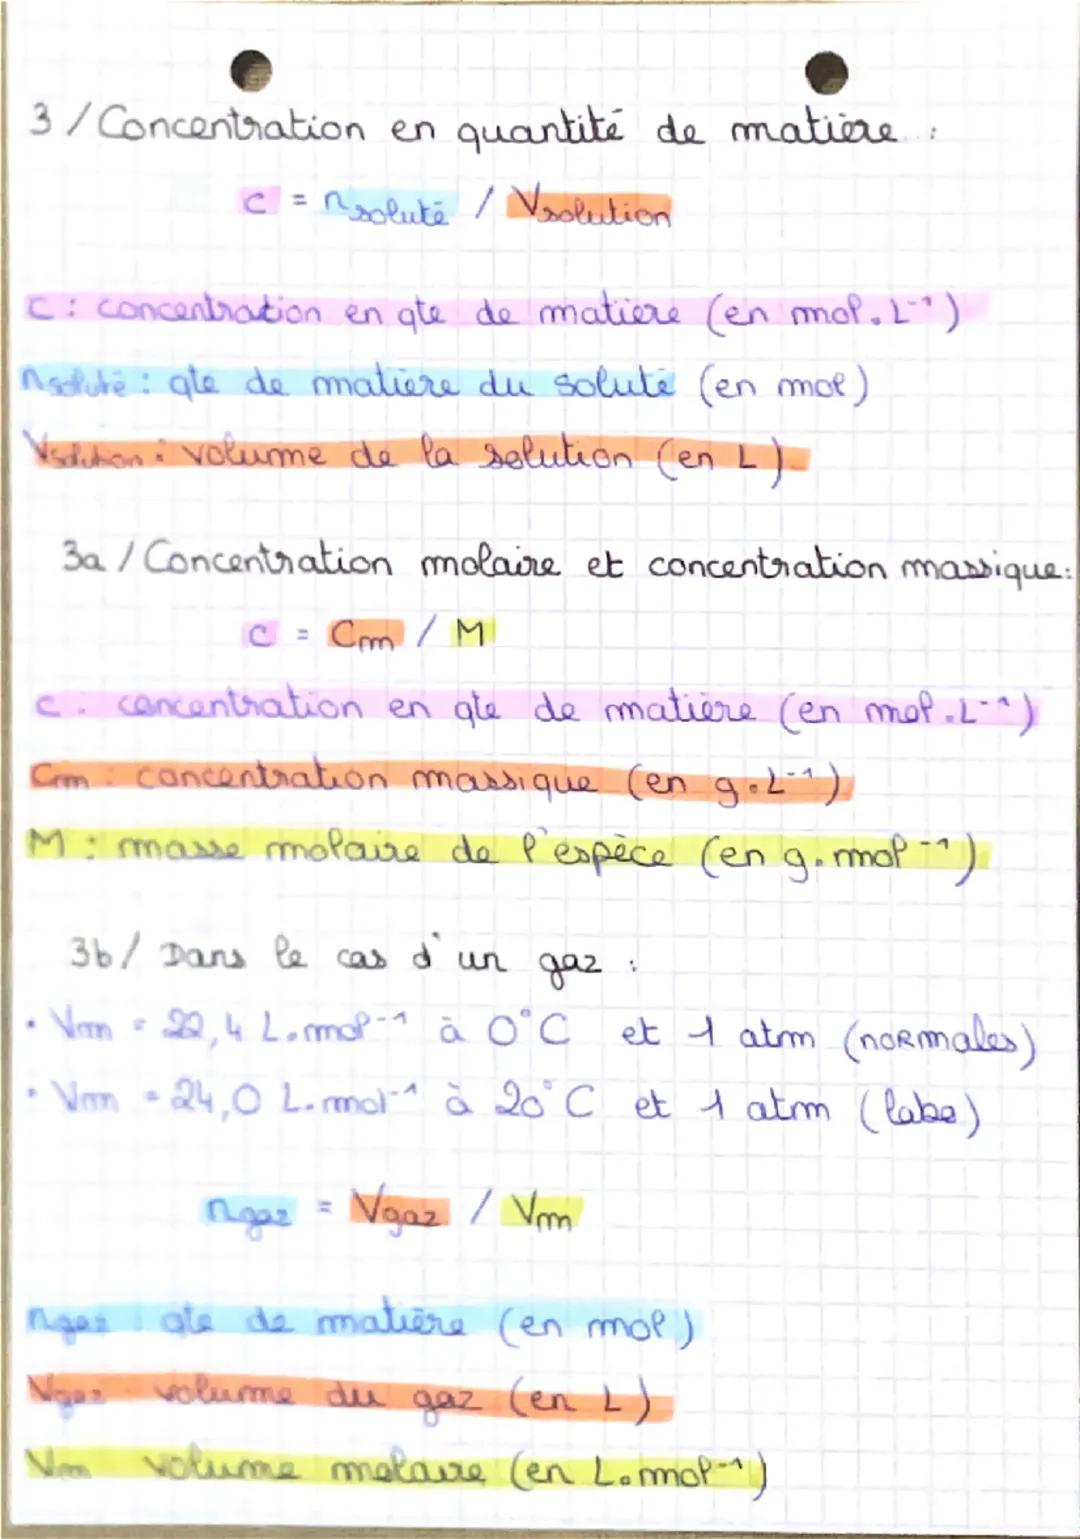 3/Concentration en quantité de matière :
c = nsoluté / Vsolution
c : concentration en qte de matière (en mol.L⁻¹)
nsoluté : qte de matière du soluté (en mol)
Vsolution : volume de la solution (en L)
3a/Concentration molaire et concentration massique:
c = Cm / M
c : concentration en qte de matière (en mol.L⁻¹)
Cm : concentration massique (en g.L⁻¹)
M : masse molaire de l'espèce (en g.mol⁻¹)
3b/ Dans le cas d'un gaz :
• Vm = 22,4 L.mol⁻¹ à 0°C et 1 atm (noRmales)
• Vm = 24,0 L.mol⁻¹ à 20°C et 1 atm (labo)
ngaz = Vgaz / Vm
ngaz : qte de matière (en mol)
Vgaz volume du gaz (en L)
Vm volume molaire (en L.mol⁻¹)